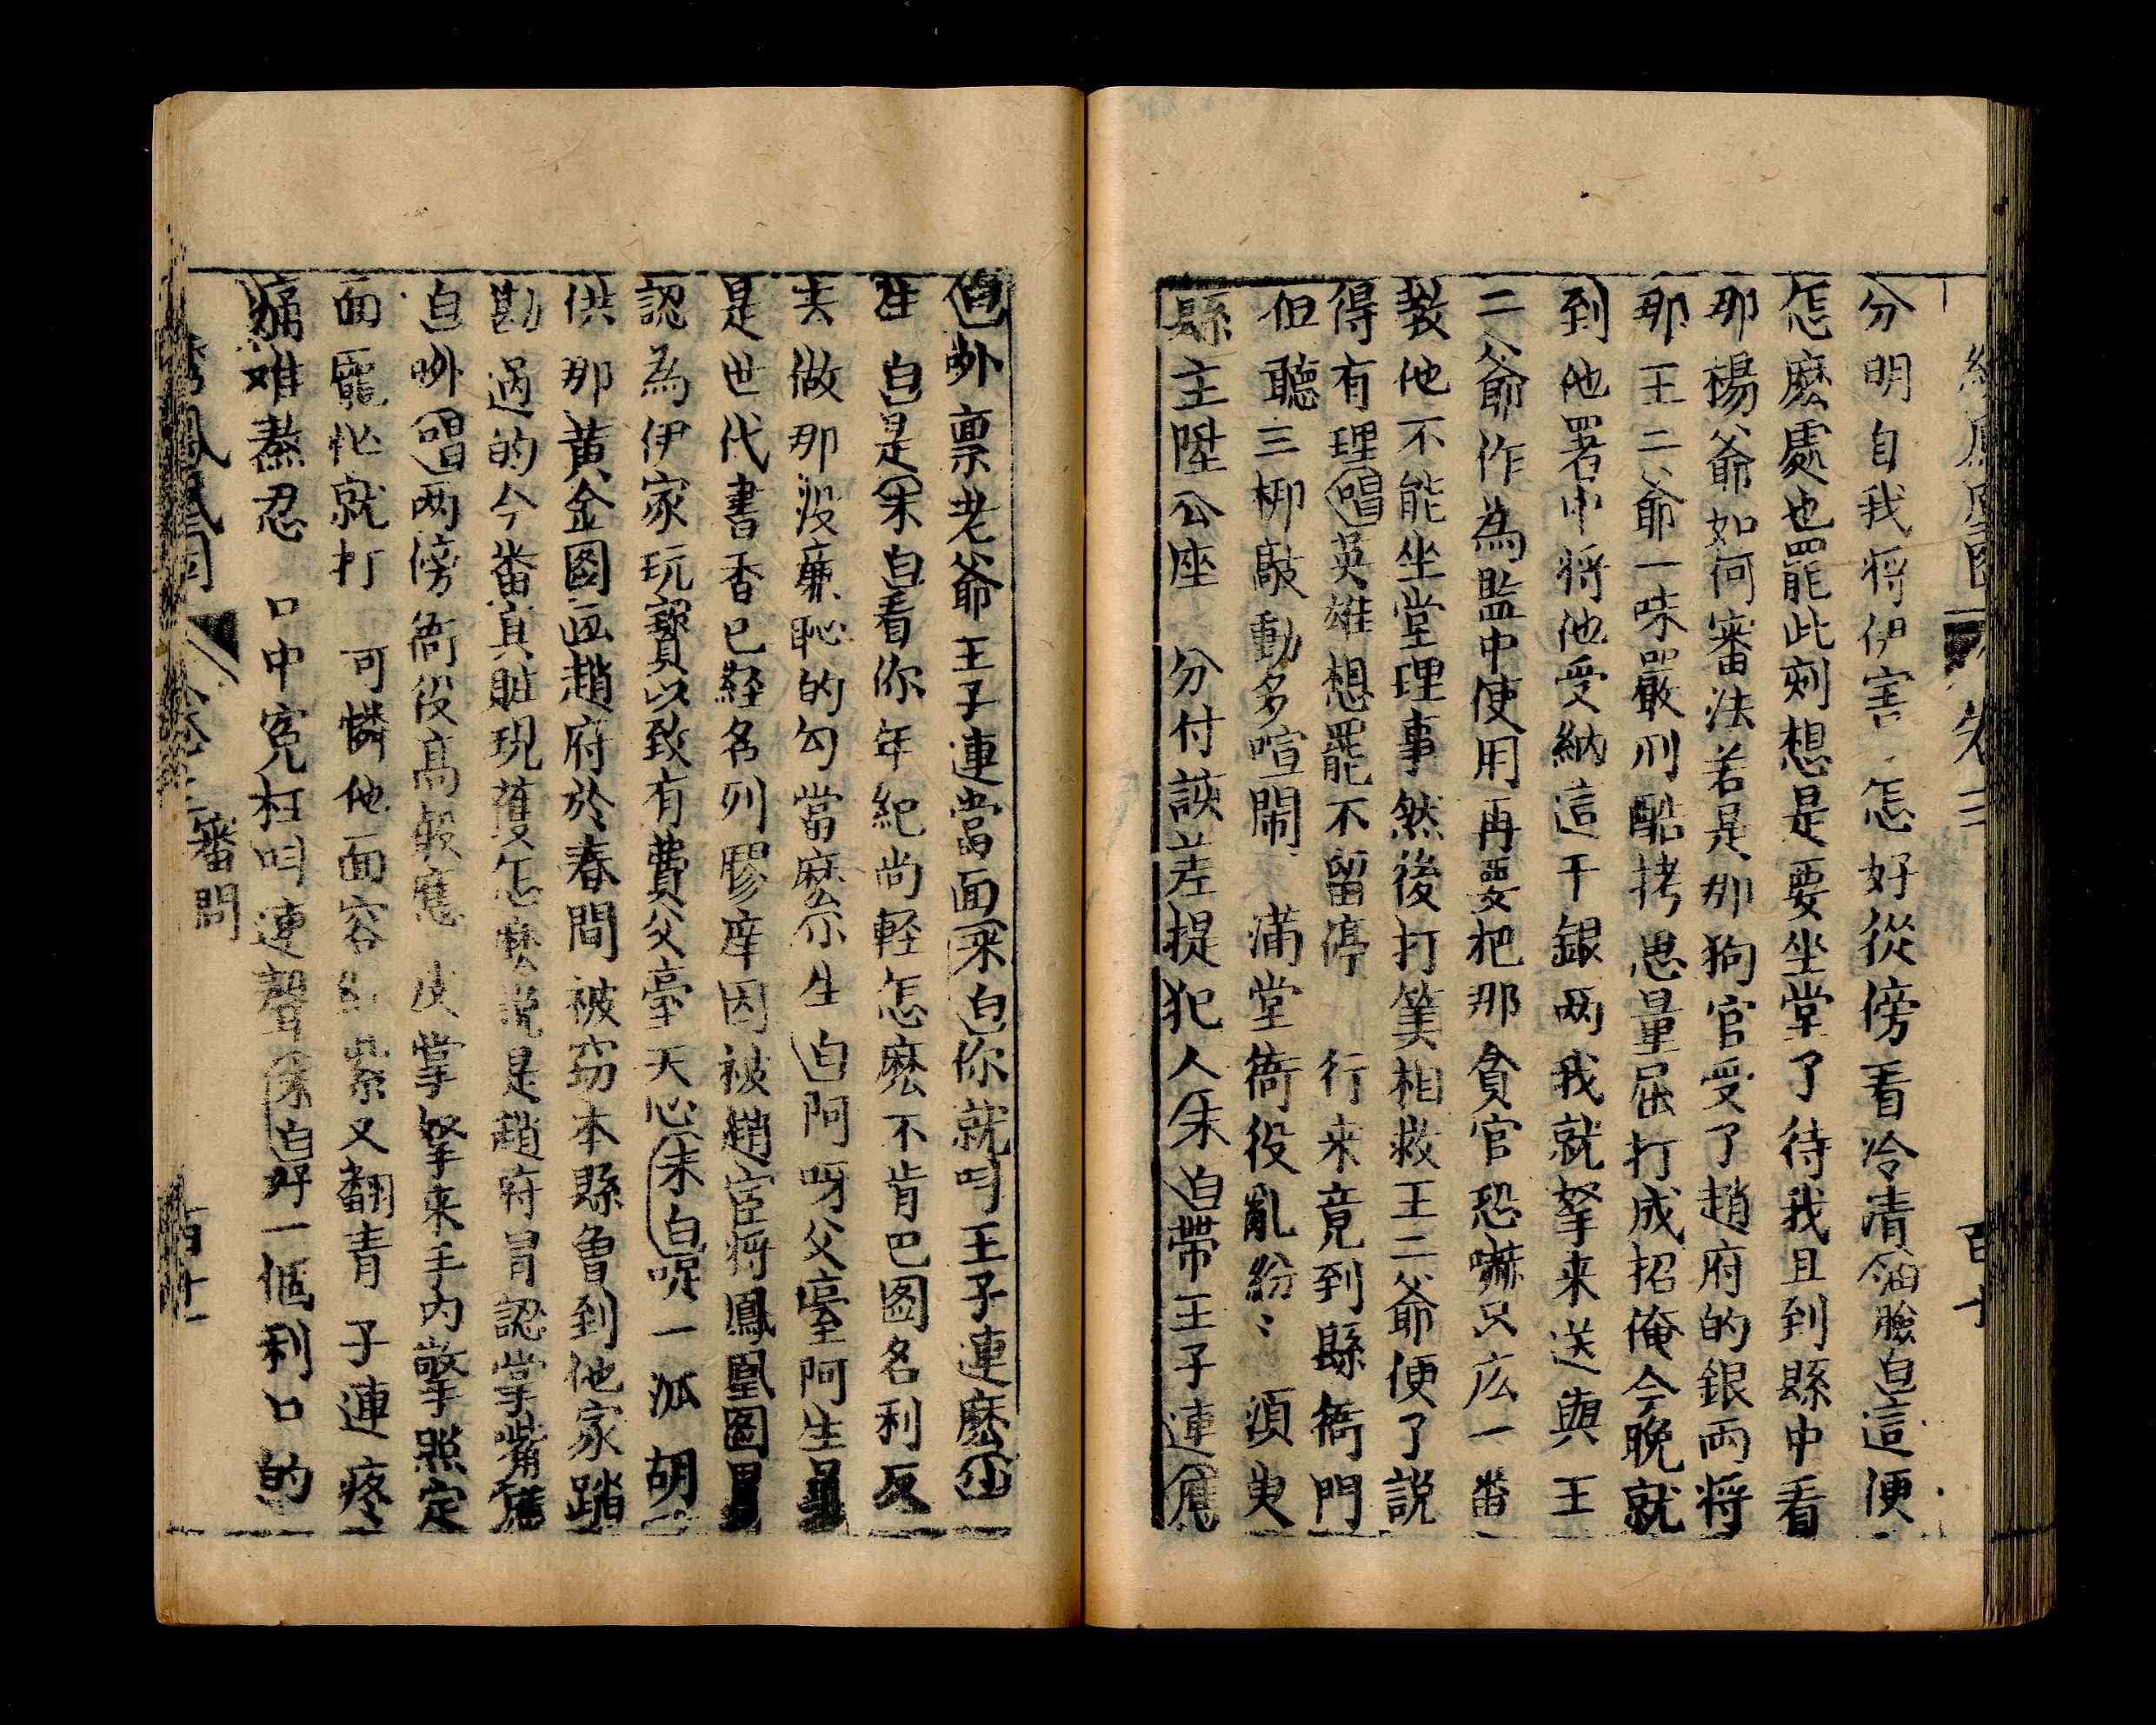 卷二
分明自我将伊害怎好從傍看冷清白這便
怎麽處也罷此刻想是要坐堂了待我且到縣中看
那楊爺如何審法若是那狗官受了趙府的銀両将
那王二爺一味嚴刑酷拷思量屈打成招俺今晚就
到他署中将他受納這干銀両我就拏来送與王
二爺作為監中使用再要把那貪官恐嚇只広一番
教他不能坐堂理事然後打筭相救王二爺便了説
得有理唱英雄想罷不留停 行来竟到縣衙門
但聽三梆敲動多喧閙 満堂衙役亂紛〻 須臾
縣主陞公座 分付該差提犯人末白帶王子連
白外禀老爺王子連當面末白你就叫王子連麽
生白是末白看你年紀尚軽怎麽不肯巴圖名利反
去做那没亷恥的勾當麽 生白阿呀父臺阿生員
是世代書香已經名列膠庠因被趙宦将鳳凰圖冒
認為伊家玩寳以致有費父臺天心末白呢一派胡
供那黄金圖画趙府於春間被窃本縣曾到他家踏
勘過的今番真賍現獲怎麽説是趙府冒認掌嘴
白外唱両傍衙役髙聲應 皮掌拏来手内擎照定
面龎忙就打 可憐他面容紅紫又翻青 子連疼
痛难熬忍 口中寃枉叫連聲末白好一個利口的
繡鳳凰圖 卷二 審問 百廿一